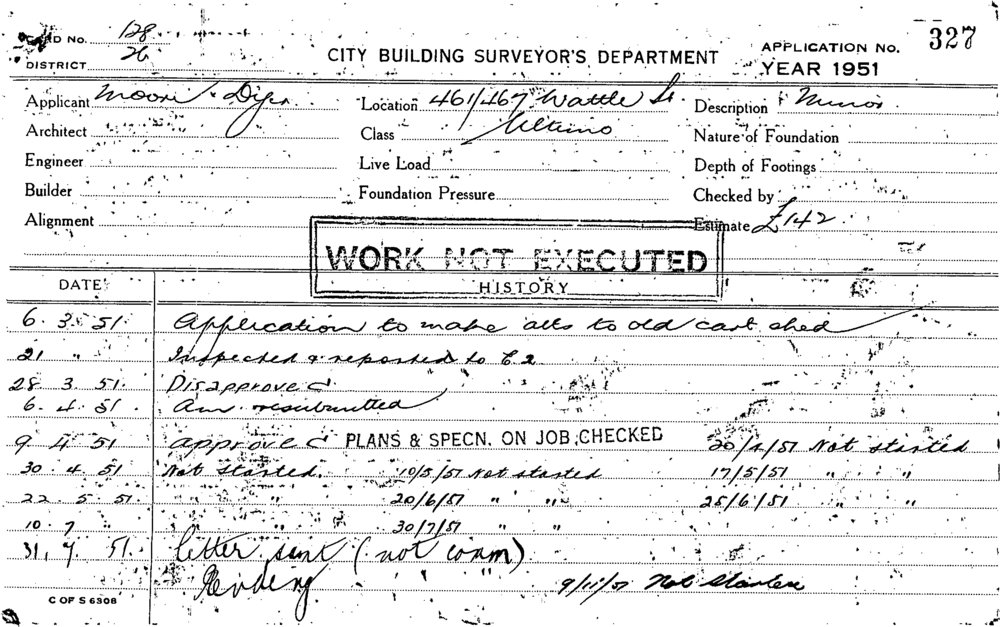 CARD No. 128
DISTRICT 26
CITY BUILDING SURVEYOR'S DEPARTMENT
APPLICATION No. 327
YEAR 1951
Applicant Moore & Dyer Location 461/467 Wattle St. Description Minor
Architect Class Ultimo Nature of Foundation
Engineer Live Load Depth of Footings
Builder Foundation Pressure Checked by
Alignment Estimate £142
WORK NOT EXECUTED
DATE HISTORY
6. 3. 51. Application to make alts to old cart shed
21 " Inspected & reported to C.2
28 3. 51. Disapproved
6. 4. 51. Am. resubmitted
9 4. 51 approved PLANS & SPECN. ON JOB CHECKED 20/4/51 Not started
30. 4. 51 Not started. 10/5/51 Not started 17/5/51 " "
22. 5. 51. " " 20/6/51 " " 25/6/51 " "
10. 7 " " 30/7/51 " "
31. 7. 51. letter sent (not comm)
Pending " " " 9/11/51 Not Started
C OF S 6308